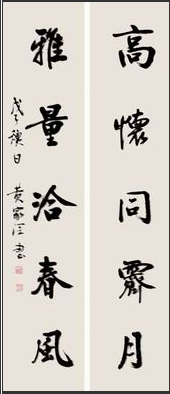 高懷同霽月
雅量洽春風
戊子 日 黄家 書